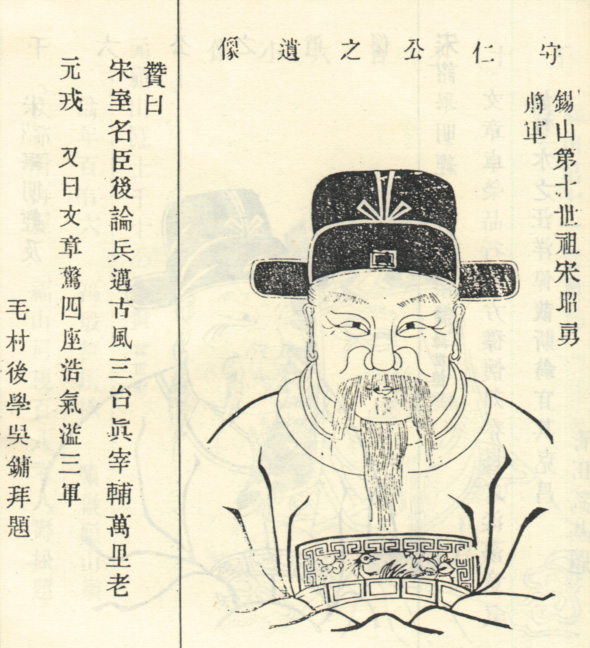 守仁公之遺像
錫山第十世祖宋昭勇
將軍
贊曰
宋室名臣後論兵邁古風三台眞宰輔萬里老
元戎 又曰文章驚四座浩氣溢三軍
毛村後學吳鏞拜題